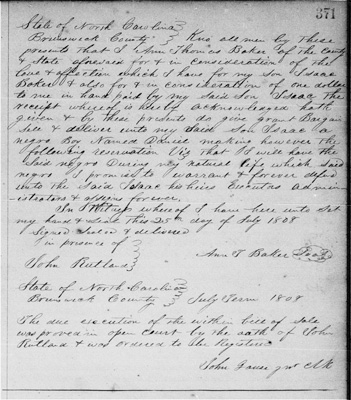 371
State of North Carolina
Brunswick County Kno all men by these
presents that I Ann Thomas Baker of the County
& State aforesaid for & in consideration of the
love & affection which I have for my son Isaac
Baker & also for & in consideration of one dollar
to me in hand paid by my said son Isaac the
receipt whereof is hereby acknowledged hath
given & by these presents do give grant Bargain
Sell & deliver unto my Said Son Isaac a
negro Boy Named Daniel making however the
following reservation Viz that I will have the
Said negro During my natural life which said
negro I promise to warrant & forever defend
unto the Said Isaac his heirs Executors admin-
istrators & assigns forever.
In Witness whereof I have here unto Set
my hand & Seal this 25th day of July 1808
Signed Sealed & delivered
in presence of
Ann T Baker Seal
John Rutland
State of North Carolina
Brunswick County July Term 1808
The due execution of the within bill of Sale
was proved in open Court by the oath of John
Rutland & was ordered to be Registered
John Gause jnr Clk